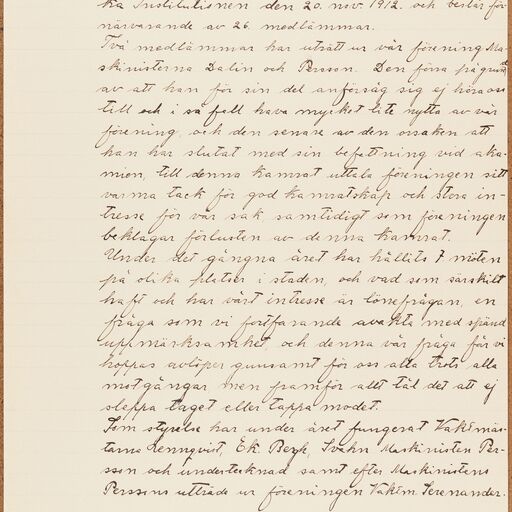 ka Institutionen den 20. nov. 1912. och består för
närvarande av 26. medlämmar.
Två medlämmar har utträtt ur vår förening Ma-
skinisterna Dalin och Persson. Den förra på grund
av att han för sin del ansåg sig ej höra oss
till och i så fall hava mycket lite nytta av vår
förening, och den senare av den orsaken att
han har slutat med sin befattning vid aka-
mien, till denna kamrat uttala föreningen sitt
varma tack för god kamratskap och stora in-
tresse för vår sak samtidigt som föreningen
beklagar förlusten av denna kamrat.
Under det gångna året har hållits 7 möten
på olika platser i staden, och vad som särskilt
haft och har vårt intresse är lönefrågan, en
fråga som vi fortfarande avakta med spänd
uppmärksamhet, och denna vår fråga får vi
hoppas avlöper gunsamt för oss alla trots alla
motgångar men framför allt täl det att ej
sleppa taget eller tappa modet.
Som styrelse har under året fungerat Vaktmäs-
tarne Lennqvist, Ek. Bergh, Svahn Maskinisten Per-
sson och undertecknad samt efter Maskinistens
Perssons utträde ur föreningen Vaktm. Serenander.